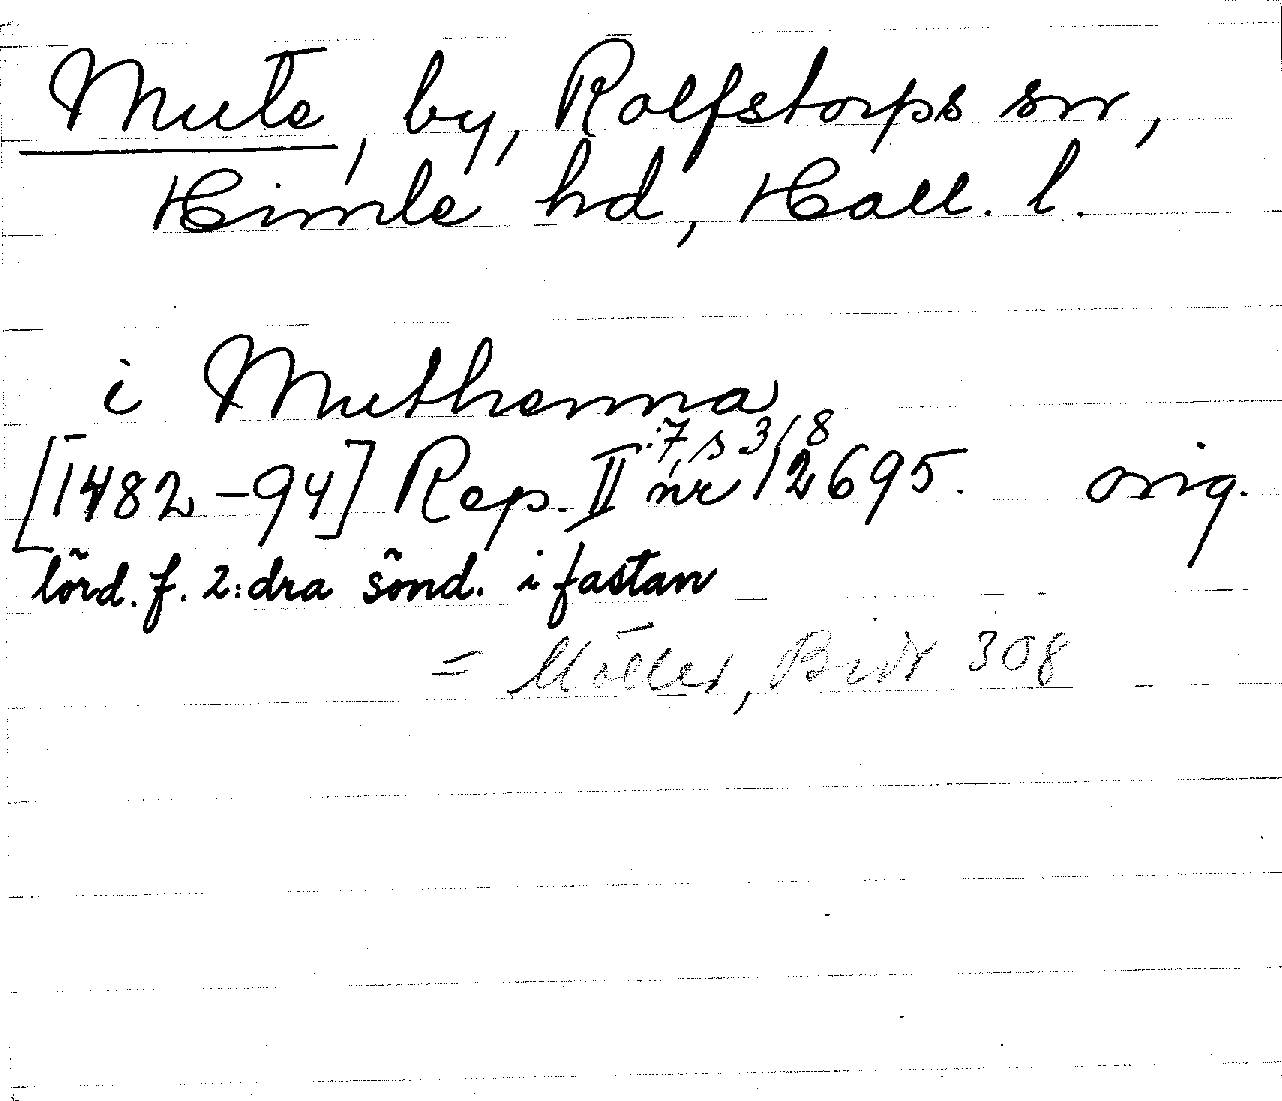 Mute, by, Rolfstorps sn,
Himle hd, Hall. l.
i Muthenna
[1482-94] Rep. II:7, s 318 nr 12695. orig.
lörd. f. 2:dra sönd. i fastan
= Möller, Bidr 308